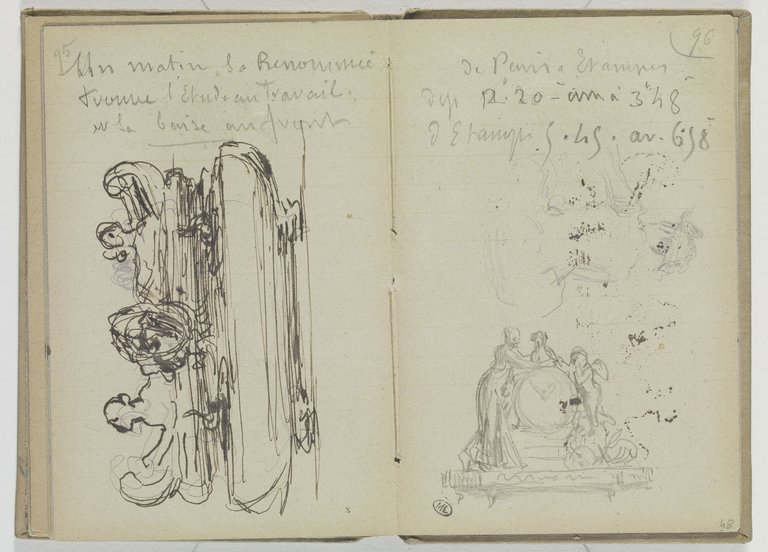 95
Un matin, la Renommée
trouve l'Etude au travail,
et la baise au front
96
de Paris a Etampes
dep 2. 20 - arr. à 3h48
d'Etampes 5. 45. ar. 6h58
48